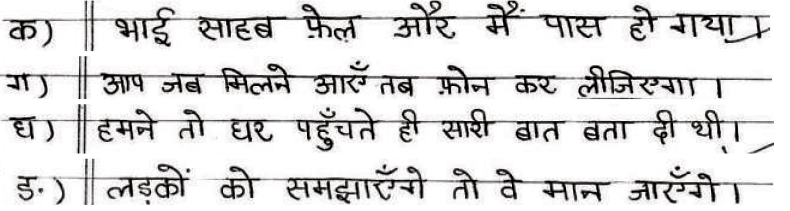 क) भाई साहब फ़ेल और मैं पास हो गया।
ग) आप जब मिलने आएँ तब फ़ोन कर लीजिएगा।
घ) हमने तो घर पहुँचते ही सारी बात बता दी थी।
ङ.) लड़कों को समझाएँगे तो वे मान जाएँगे।